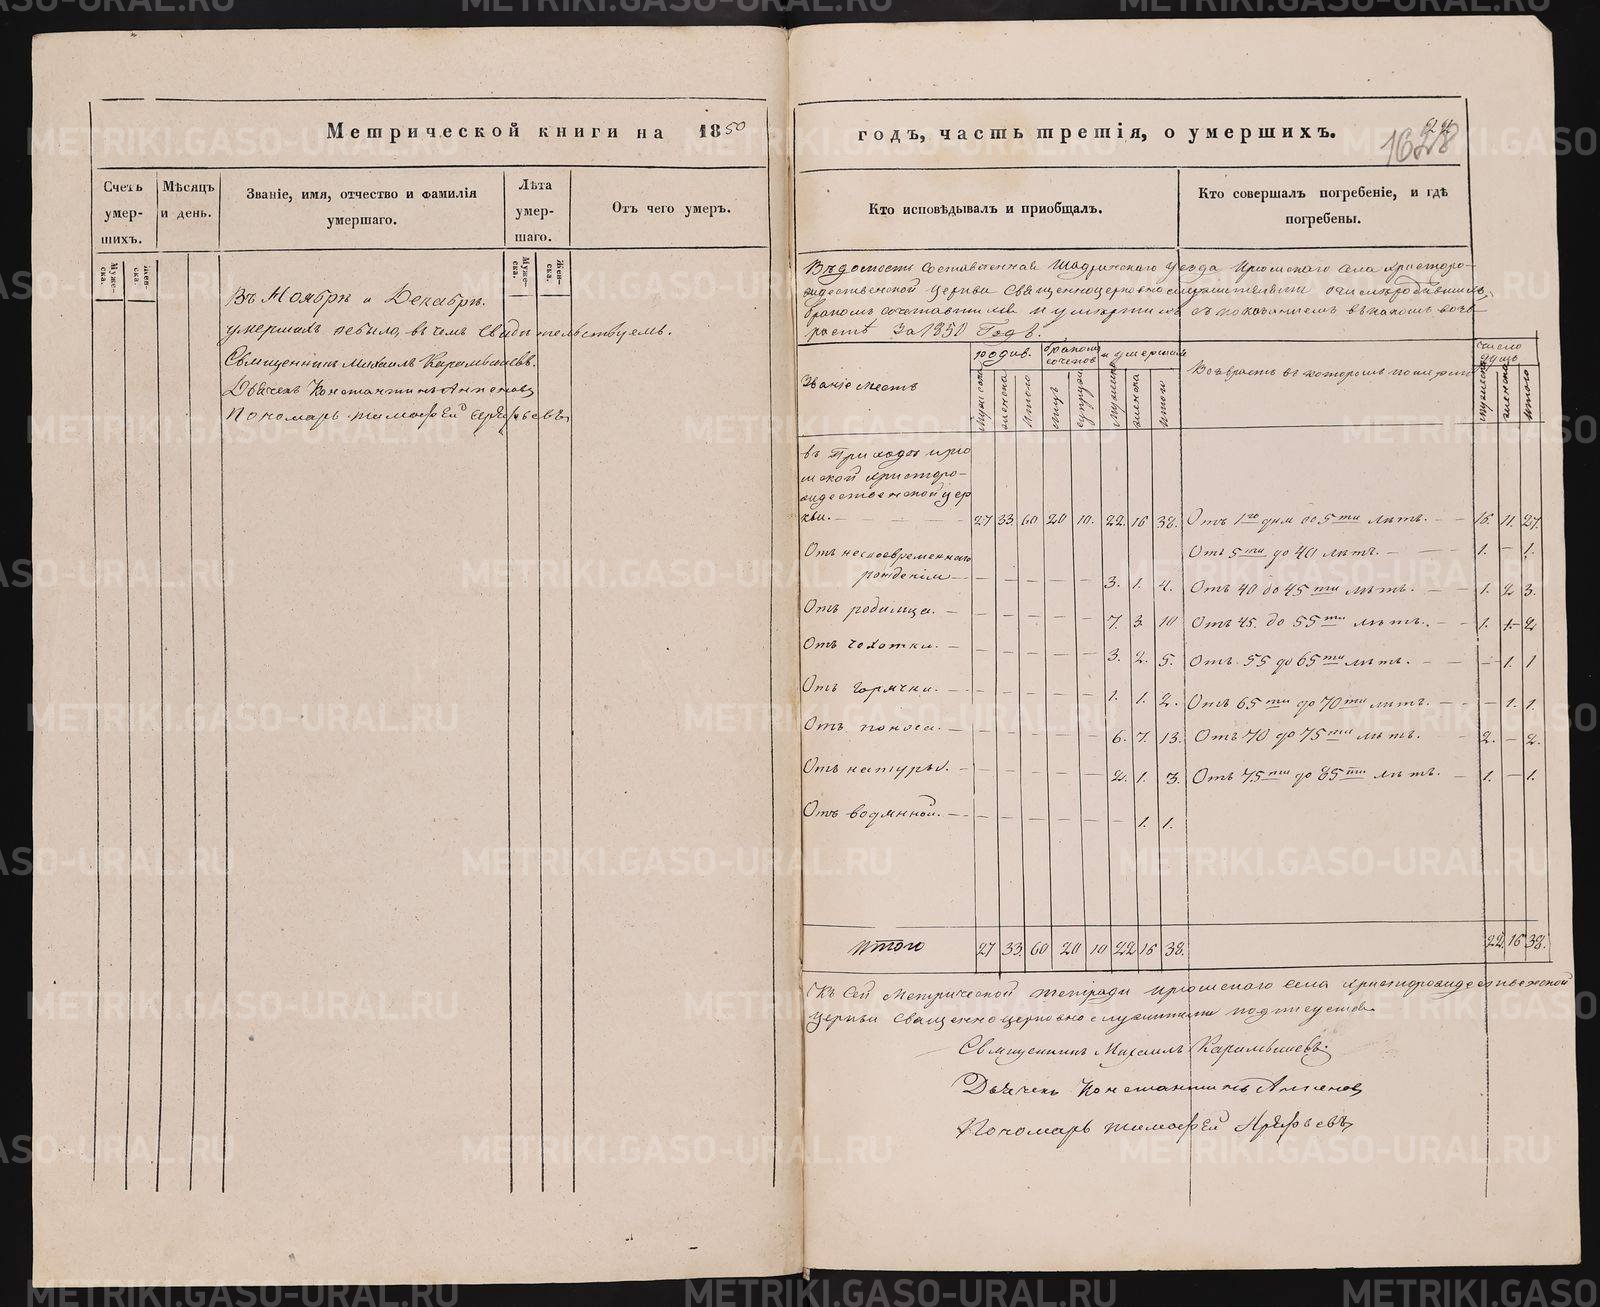 Метрической книги на 1850
Счетъ умер-шихъ.
Мѣсяцъ и день.
Званіе, имя, отчество и фамилія умершаго.
Лѣта умер-шаго.
Отъ чего умеръ.
Муже-ска.
Жен-ска.
Муже-ска.
Жен-ска.
Въ Ноябрѣ и Декабрѣ.
умершихъ небыло, въ чемъ свидѣтельствуемъ.
Священникъ Михаилъ Карамышевъ.
Дьячекъ Константинъ
Пономарь Тимофей Арефьевъ
годъ, часть третія, о умершихъ.
22
1628
Кто исповѣдывалъ и приобщалъ.
Кто совершалъ погребеніе, и гдѣ погребены.
Вѣдомость составленная Шадринскаго Уезда села Христоро-
ждественской Церкви Священноцерковнослужителями о числѣ родившихся,
бракомъ сочетавшихся и умершихъ съ показаніемъ въ какомъ воз-
растѣ За 1850 Годъ.
Званіе мѣстъ
родив.
бракомъ сочетав
умершихъ
Возрастъ въ которомъ померли
число душъ
мужеска
женска
итого
мужъ
супруги
мужеска
женска
итого
мужеска
женска
итого
въ Приходѣ
ской Христоро-
ждественской цер
кви. — 27 33 60 20 10. 22. 16 38. Отъ 1го дня до 5ти лѣтъ. — 16. 11. 27.
Отъ несвоевременнаго Отъ 5ти до 40 лѣтъ. — 1. — 1.
рожденія — 3. 1. 4. Отъ 40 до 45ти лѣтъ. — 1. 2 3.
Отъ родимца. — 7. 3. 10 Отъ 45. до 55ти лѣтъ. — 1. 1. 2
Отъ чохотки. — 3. 2. 5. Отъ 55 до 65ти лѣтъ. — 1. 1
Отъ горячки. — 1. 1. 2. Отъ 65ти до 70ти лѣтъ. — 1. 1.
Отъ поноса. — 6. 7. 13. Отъ 70 до 75ти лѣтъ. — 2. — 2.
Отъ натуры. — 2. 1. 3. Отъ 75ти до 85ти лѣтъ. — 1. — 1.
Отъ водяной. — 1. 1.
Итого 27 33. 60 20 10 22 16 38. 22. 16 38.
Къ сей Метрической тетради села Христорождественской
Церкви Священноцерковнослужители подписуемся
Священникъ Михаилъ Карамышевъ.
Дьячекъ Константинъ
Пономарь Тимофей Арефьевъ
METRIKI.GASO-URAL.RU